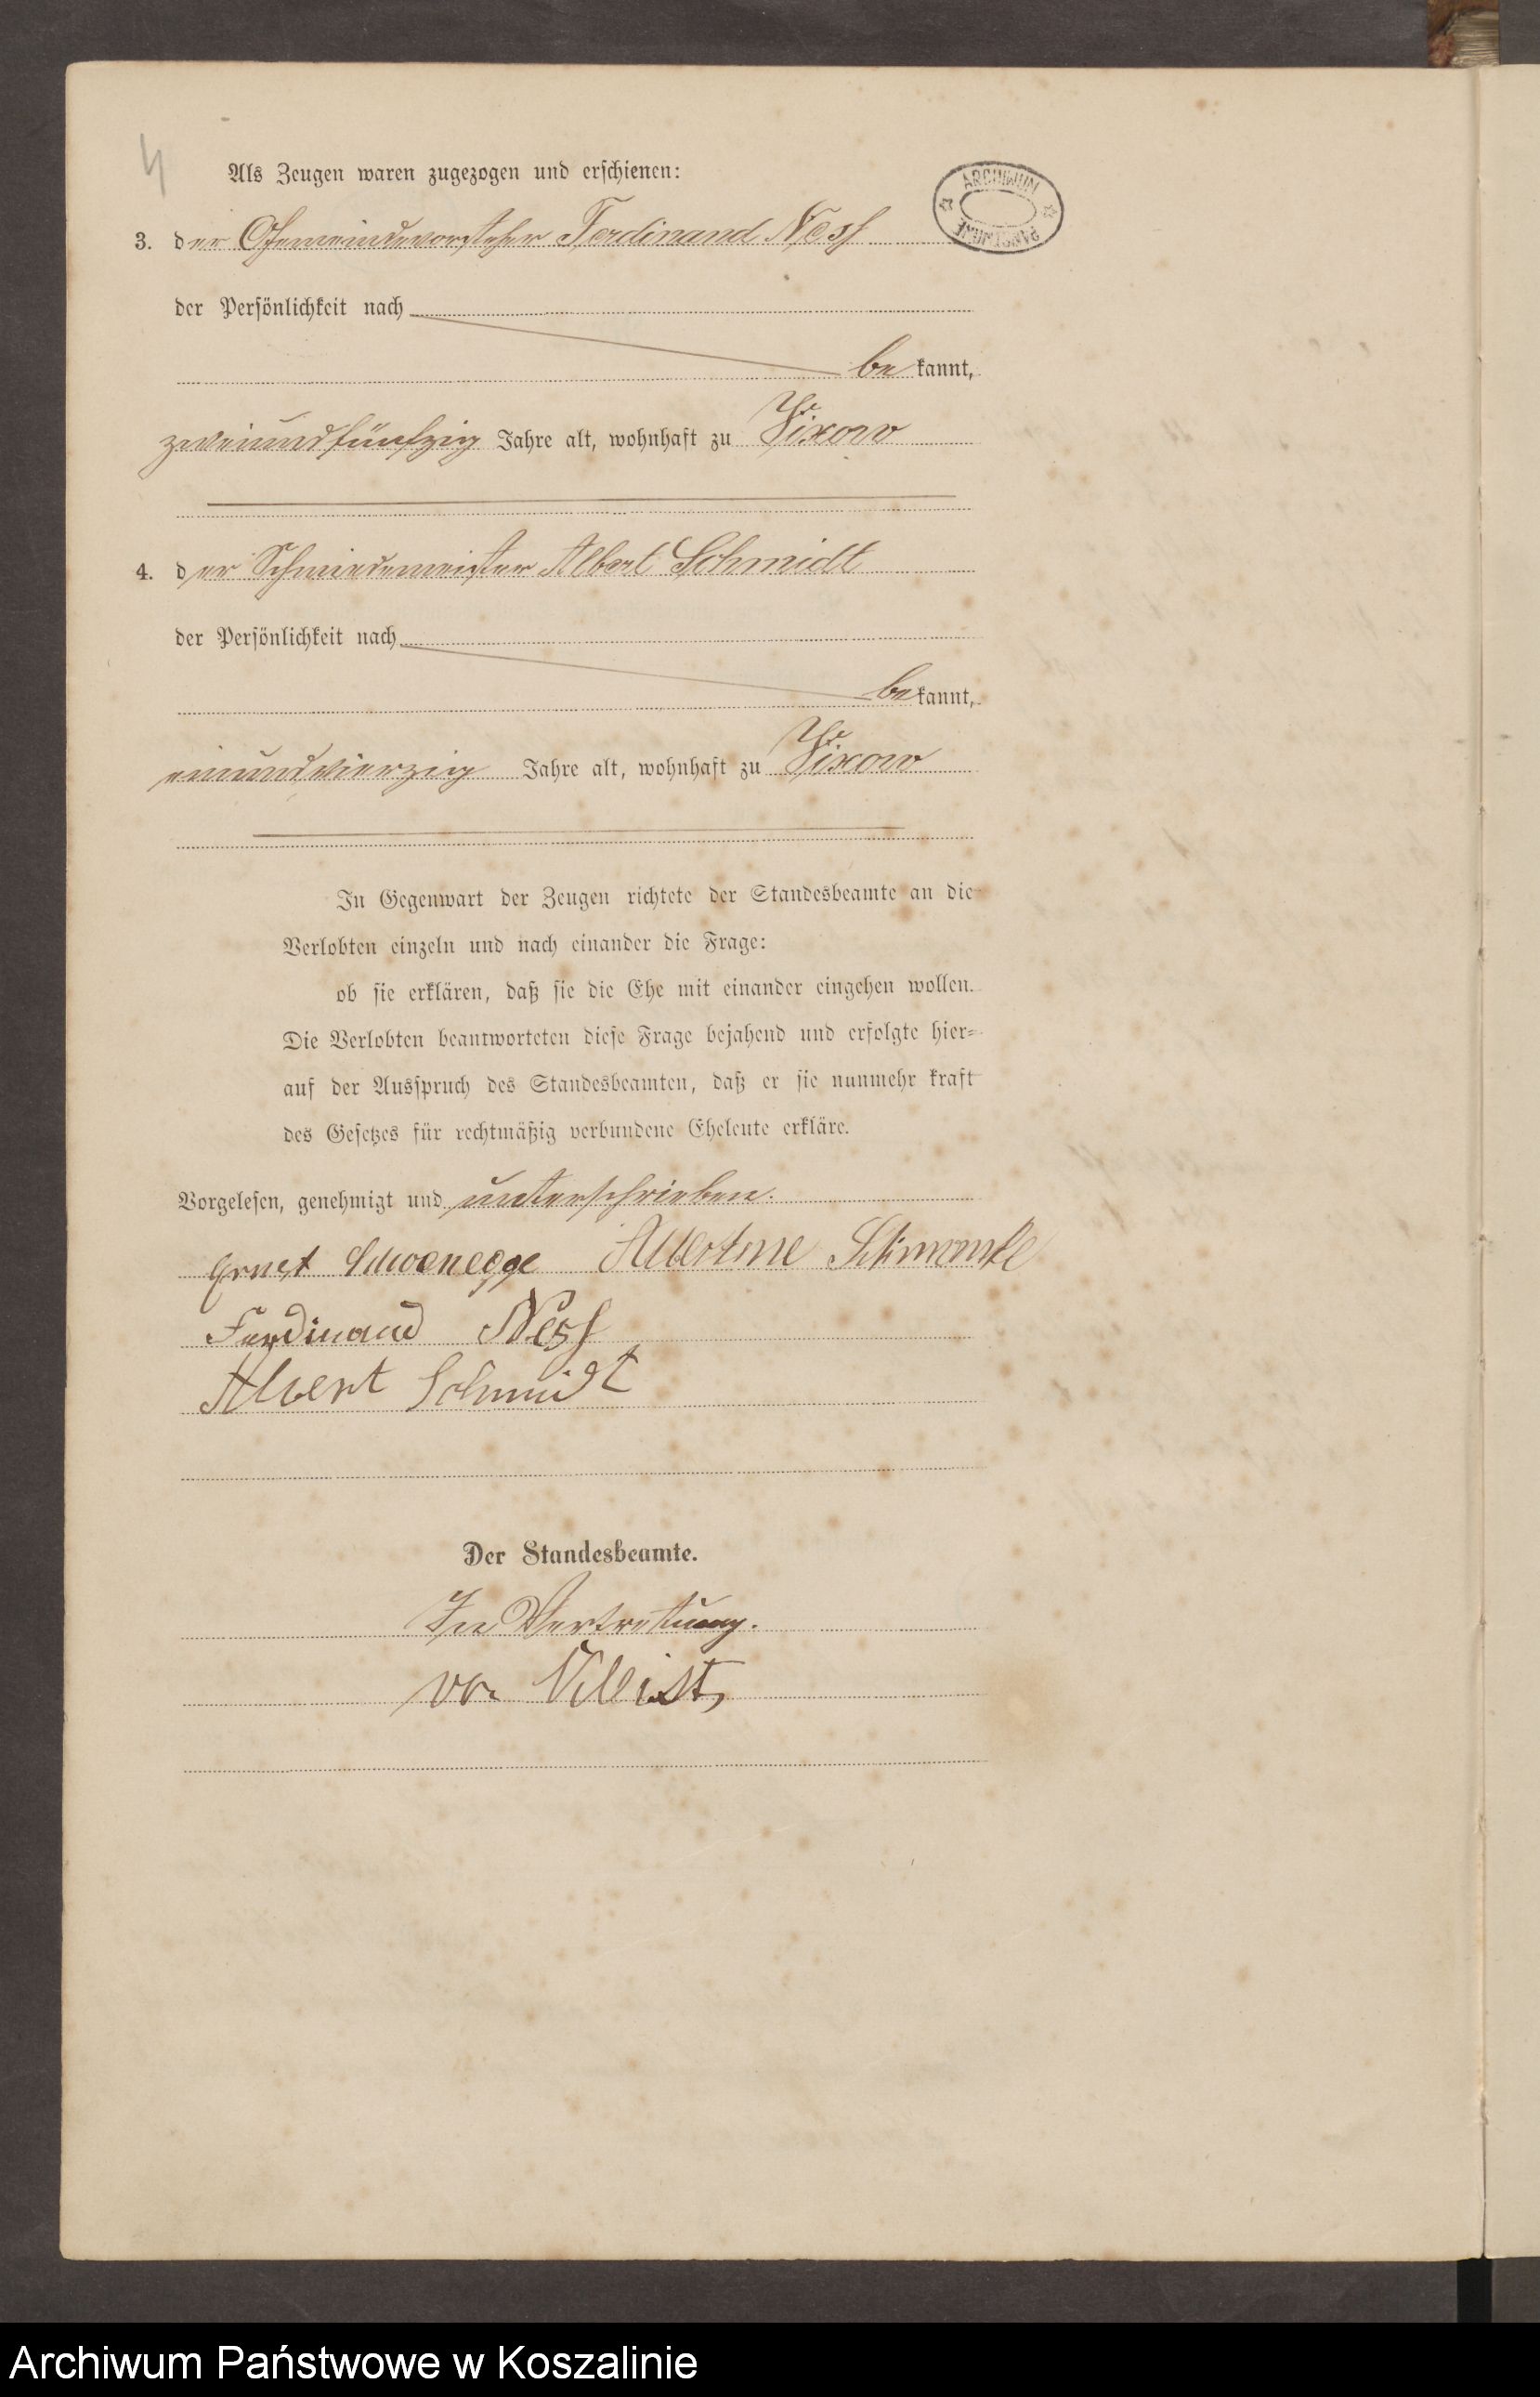 4
Als Zeugen waren zugezogen und erschienen:
ARCHIWUM PAŃSTWOWE
3. der Gemeindevorsteher Ferdinand Ness
der Persönlichkeit nach
be kannt,
zweiundfünfzig Jahre alt, wohnhaft zu Vixow
4. der Schmiedemeister Albert Schmidt
der Persönlichkeit nach
be kannt,
einundvierzig Jahre alt, wohnhaft zu Vixow
In Gegenwart der Zeugen richtete der Standesbeamte an die
Verlobten einzeln und nach einander die Frage:
ob sie erklären, daß sie die Ehe mit einander eingehen wollen.
Die Verlobten beantworteten diese Frage bejahend und erfolgte hier-
auf der Ausspruch des Standesbeamten, daß er sie nunmehr kraft
des Gesetzes für rechtmäßig verbundene Eheleute erkläre.
Vorgelesen, genehmigt und unterschrieben.
Ernst Schoenegge Albertine
Ferdinand Ness
Albert Schmidt
Der Standesbeamte.
In Vertretung.
von Kleist,
Archiwum Państwowe w Koszalinie